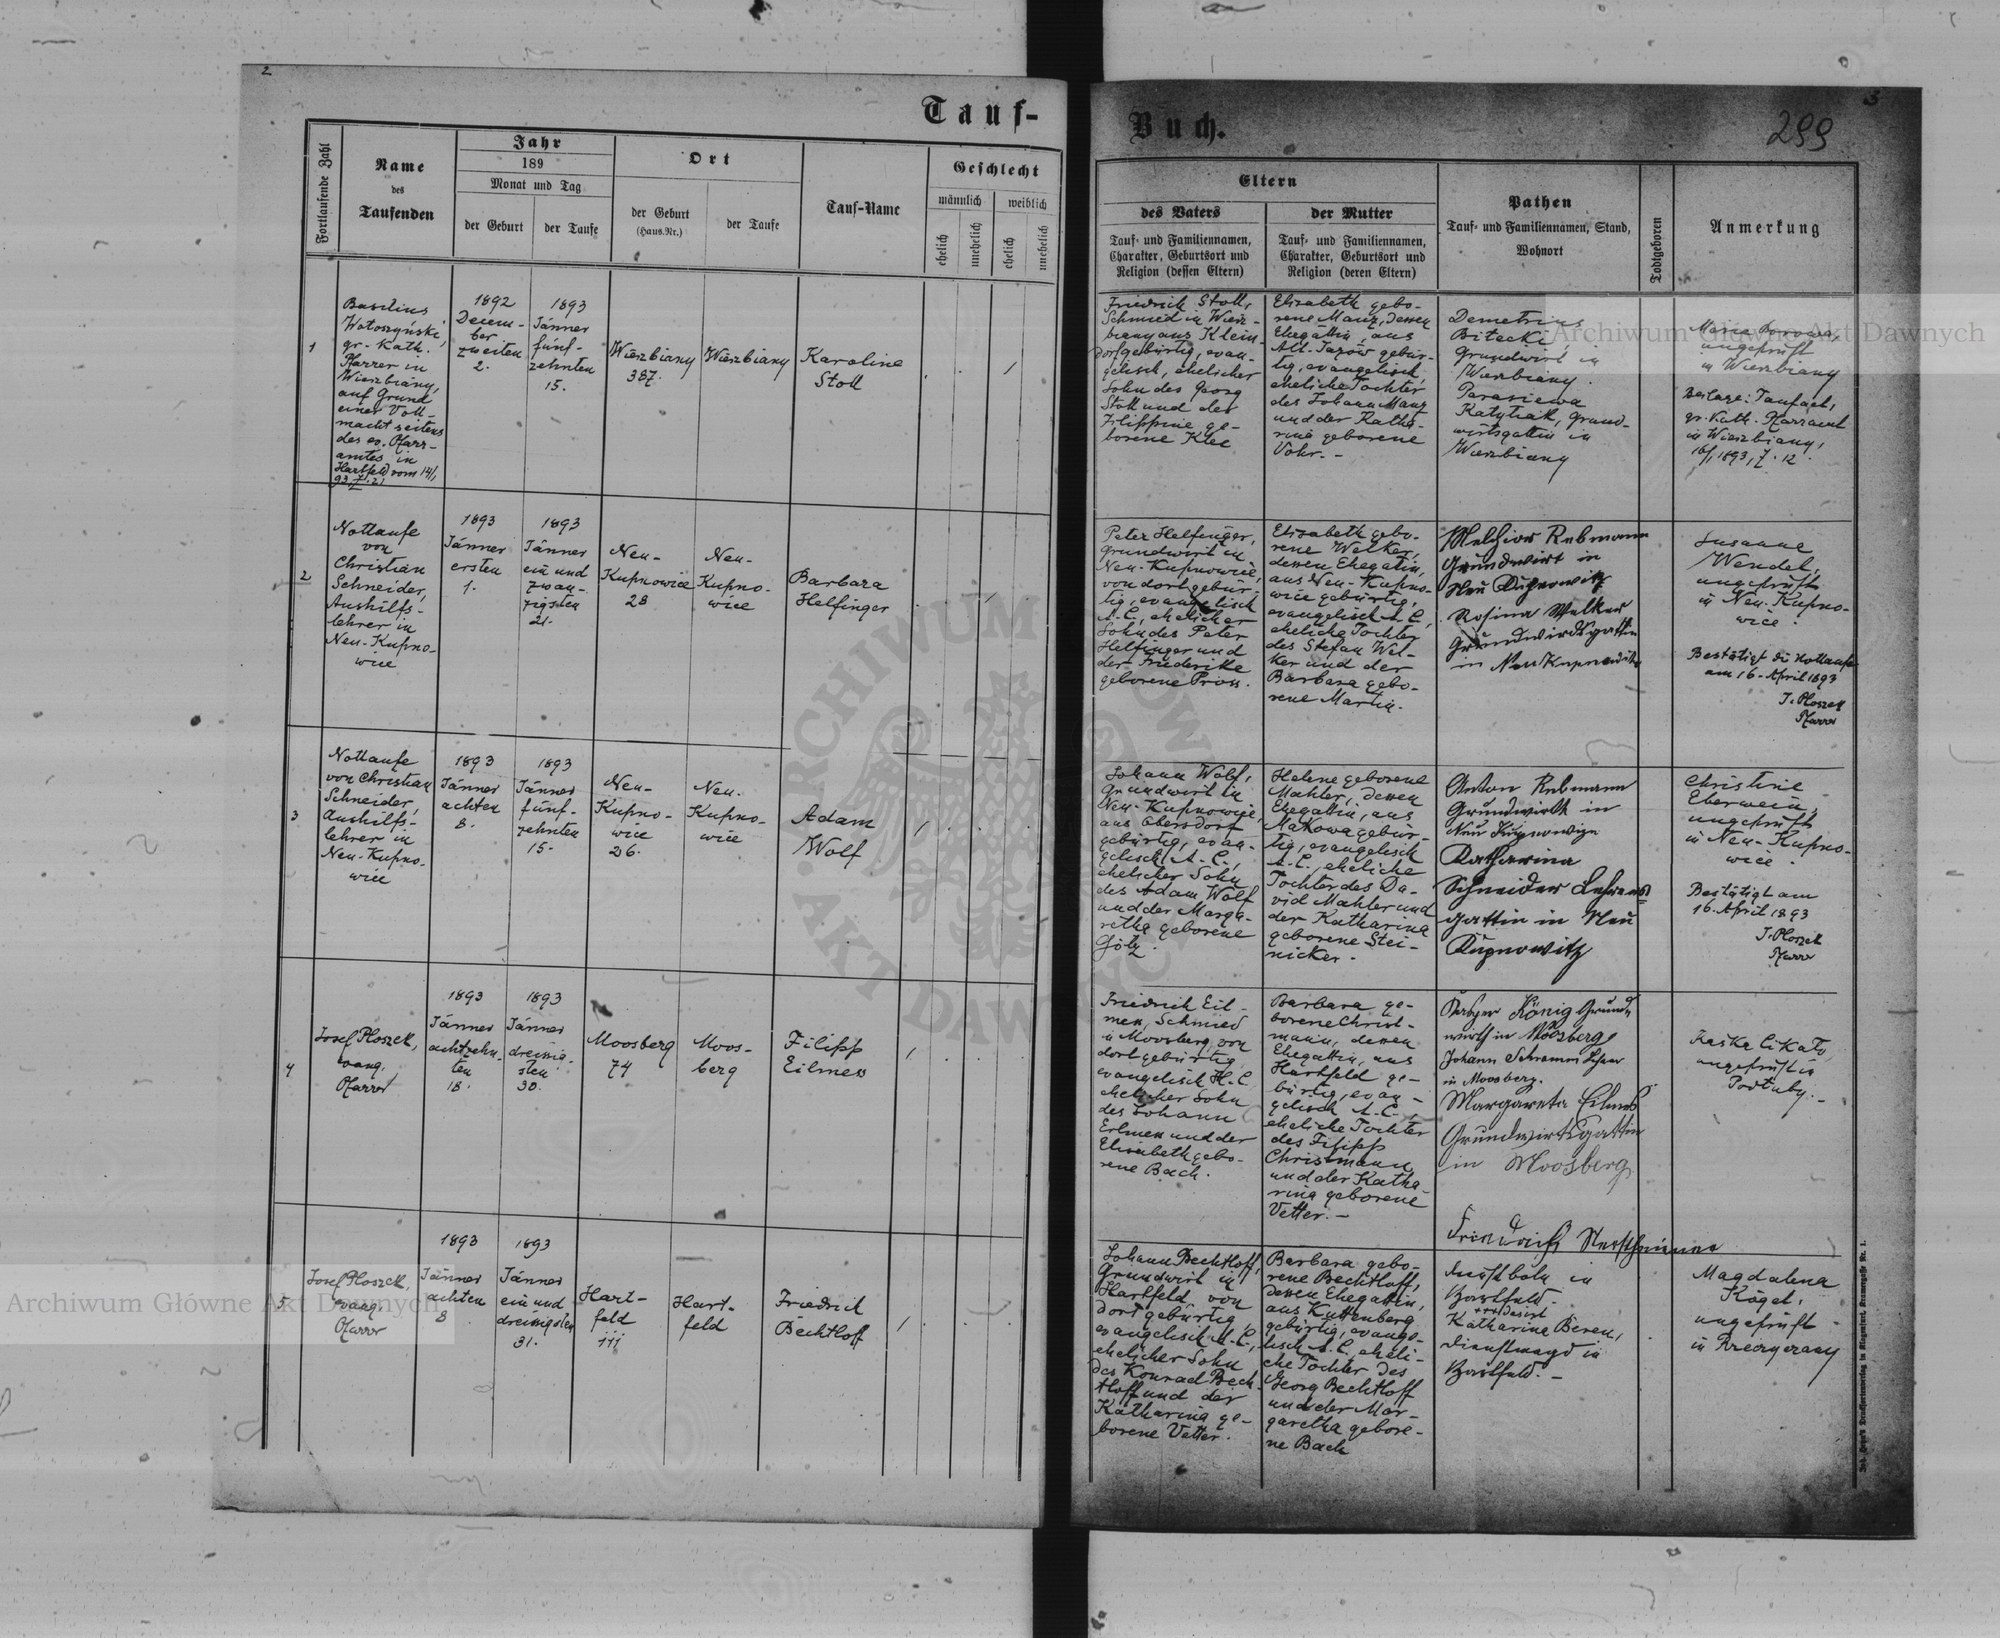 2
Tauf-
Fortlaufende Zahl
Name
des
Taufenden
Jahr
189
Monat und Tag
der Geburt
der Taufe
Ort
der Geburt
(Haus-Nr.)
der Taufe
Tauf-Name
Geschlecht
männlich
weiblich
ehelich
unehelich
ehelich
unehelich
1
Basilius
Wołoszyński,
gr. kath.
Pfarrer in
Wierzbiany,
auf Grund
einer Voll-
macht seitens
des ev. Pfarr-
amtes in
Hartfeld vom 14/1
93, Z. 21
1892
Decem-
ber
zweiten
2.
1893
Jänner
fünf-
zehnten
15.
Wierzbiany
387.
Wierzbiany
Karoline
Stoll
2
Nottaufe
von
Christian
Schneider,
Aushilfs-
lehrer in
Neu-Kupno-
wice
1893
Jänner
ersten
1.
1893
Jänner
ein und
zwan-
zigsten
21.
Neu-
Kupnowice
28
Neu-
Kupno-
wice
Barbara
Helfinger
3
Nottaufe
von Christian
Schneider,
Aushilfs-
lehrer in
Neu-Kupno-
wice
1893
Jänner
achten
8.
1893
Jänner
fünf-
zehnten
15.
Neu-
Kupno-
wice
26.
Neu-
Kupno-
wice
Adam
Wolf
4
Josef Ploszek,
evang.
Pfarrer
1893
Jänner
achtzehn-
ten
18.
1893
Jänner
dreissig-
sten
30.
Moosberg
74
Moos-
berg
Filipp
Eilmes
5
Josef Ploszek,
evang.
Pfarrer
1893
Jänner
achten
8
1893
Jänner
ein und
dreissigsten
31.
Hart-
feld
111
Hart-
feld
Friedrich
Bechtloff
3
Buch.
299
Eltern
des Vaters
Tauf- und Familiennamen,
Charakter, Geburtsort und
Religion (dessen Eltern)
der Mutter
Tauf- und Familiennamen,
Charakter, Geburtsort und
Religion (deren Eltern)
Pathen
Tauf- und Familiennamen, Stand,
Wohnort
Todtgeboren
Anmerkung
Friedrich Stoll,
Schmied in Wierz-
biany aus Klein-
dorf gebürtig, evan-
gelisch, ehelicher
Sohn des Georg
Stoll und der
Filippine ge-
borene Klee
Elisabeth gebo-
rene Manz, dessen
Ehegattin, aus
Alt-Jazów gebür-
tig, evangelisch,
eheliche Tochter
des Johann Manz
und der Katha-
rina geborene
Vohr.-
Demetrius
Bitecki
Grundwirt in
Wierzbiany.
Parasiewa
Katytiak, Grund-
wirtsgattin in
Wierzbiany
Maria
ungeprüft
in Wierzbiany
Beilage: Taufact,
gr. kath. Pfarramt
in Wierzbiany,
16/1 1893, Z. 12.
Peter Helfinger,
Grundwirt in
Neu-Kupnowice,
von dort gebür-
tig, evangelisch
A.C., ehelicher
Sohn des Peter
Helfinger und
der Friederike
geborene Pross.
Elisabeth gebo-
rene Welker,
dessen Ehegattin,
aus Neu-Kupno-
wice gebürtig,
evangelisch A.C.,
eheliche Tochter
des Stefan Wel-
ker und der
Barbara gebo-
rene Martin.
Melchior Rebmann
Grundwirt in
Neu Kupnowitz
Rosina Welker
Grundwirdsgattin
in Neu Kupnowitz
Susanne
Wendel,
ungeprüft
in Neu-Kupno-
wice.
Bestätigt die Nottaufe
am 16. April 1893
J. Ploszek
Pfarrer
Johann Wolf,
Grundwirt in
Neu-Kupnowice,
aus Ebersdorf
gebürtig, evan-
gelisch A.C.,
ehelicher Sohn
des Adam Wolf
und der Marga-
retha geborene
Götz.
Helene geborene
Mahler, dessen
Ehegattin, aus
Makowa gebür-
tig, evangelisch
A.C., eheliche
Tochter des Da-
vid Mahler und
der Katharina
geborene Stei-
nicker.
Anton Rebmann
Grundwirt in
Neu Kupnowize
Katharina
Schneider Lehrers
gattin in Neu
Kupnowitz
Christine
Eberwein,
ungeprüft
in Neu-Kupno-
wice.
Bestätigt am
16. April 1893
J. Ploszek
Pfarrer
Friedrich Eil-
mes, Schmied
in Moosberg, von
dort gebürtig,
evangelisch H.C.
ehelicher Sohn
des Johann
Eilmes und der
Elisabeth gebo-
rene Bach.
Barbara ge-
borene Christ-
mann, dessen
Ehegattin, aus
Hartfeld ge-
bürtig, evan-
gelisch A.C.,
eheliche Tochter
des Filipp
Christmann
und der Katha-
rina geborene
Vetter.-
König Grund-
wirth in Moosberg
Johann Schramm
in Moosberg.
Margareta Eilmes
Grundwirtsgattin
in Moosberg
ungeprüft in
Johann Bechtloff,
Grundwirt in
Hartfeld von
dort gebürtig,
evangelisch A.C.,
ehelicher Sohn
des Konrad Bech-
tloff und der
Katharina ge-
borene Vetter.
Barbara gebo-
rene Bechtloff,
dessen Ehegattin,
aus Kuttenberg
gebürtig, evange-
lisch A.C., eheli-
che Tochter des
Georg Bechtloff
und der Mar-
garetha gebore-
ne Bach
Friedrich
Dienstbote in
Hartfeld.
Katharina Beren,
Dienstmagd in
Hartfeld.-
Magdalena
Kögel,
ungeprüft
in
Archiwum Główne Akt Dawnych
Archiwum Główne Akt Dawnych
ARCHIWUM GŁÓWNE
AKT DAWNYCH